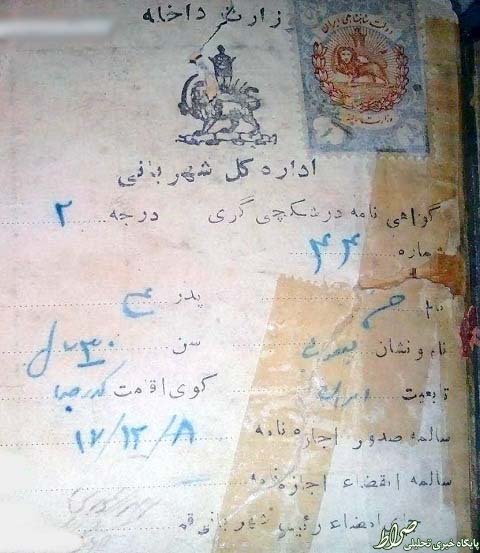 وزارت داخله
دولت شاهنشاهی ایران
اداره کل شهربانی
گواهی نامه درشکچی گری درجه ۲
شماره ۴۴
نام پدر
نام و نشان سن ۳۰
تبعیت ایران کوی اقامت
سالمه صدور اجازه نامه ۱۷/۱۲/۸
سالمه انقضاء اجازه نامه
امضاء رئیس شهربانی قم
صراط
پایگاه خبری تحلیلی